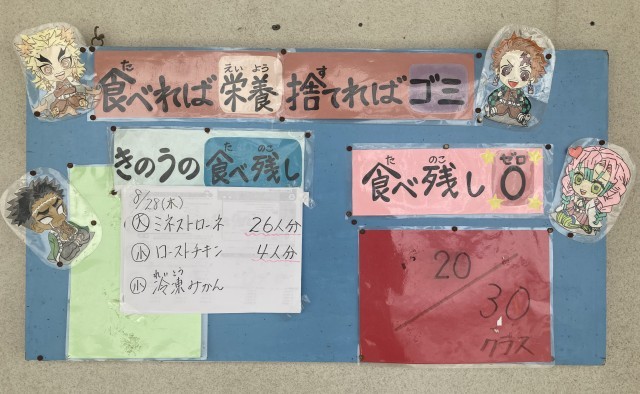 食べれば栄養 捨てればゴミ
きのうの食べ残し
8/28(木)
大 ミネストローネ 26人分
小 ローストチキン 4人分
小 冷凍みかん
食べ残し 0
20/30
クラス